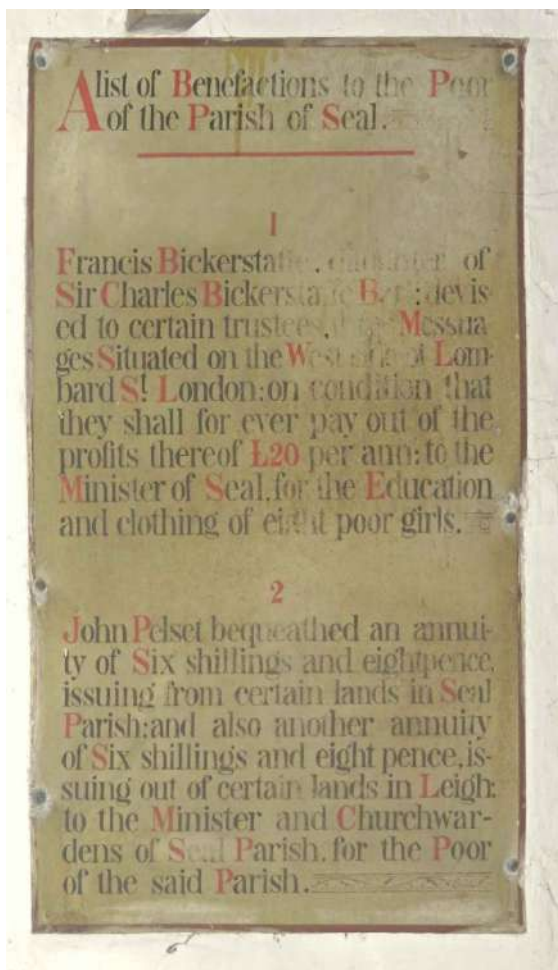 A list of Benefactions to the Poor
of the Parish of Seal.
1
Francis Bickerstaffe, daughter of
Sir Charles Bickerstaffe devis
ed to certain trustees, Messua
ges Situated on the West side of Lom-
bard St. London: on condition that
they shall for ever pay out of the
profits thereof £20 per ann: to the
Minister of Seal, for the Education
and clothing of eight poor girls.
2
John Pelset bequeathed an annui-
ty of Six shillings and eightpence,
issuing from certain lands in Seal
Parish: and also another annuity
of Six shillings and eight pence, is-
suing out of certain lands in Leigh:
to the Minister and Churchwar-
dens of Seal Parish, for the Poor
of the said Parish.